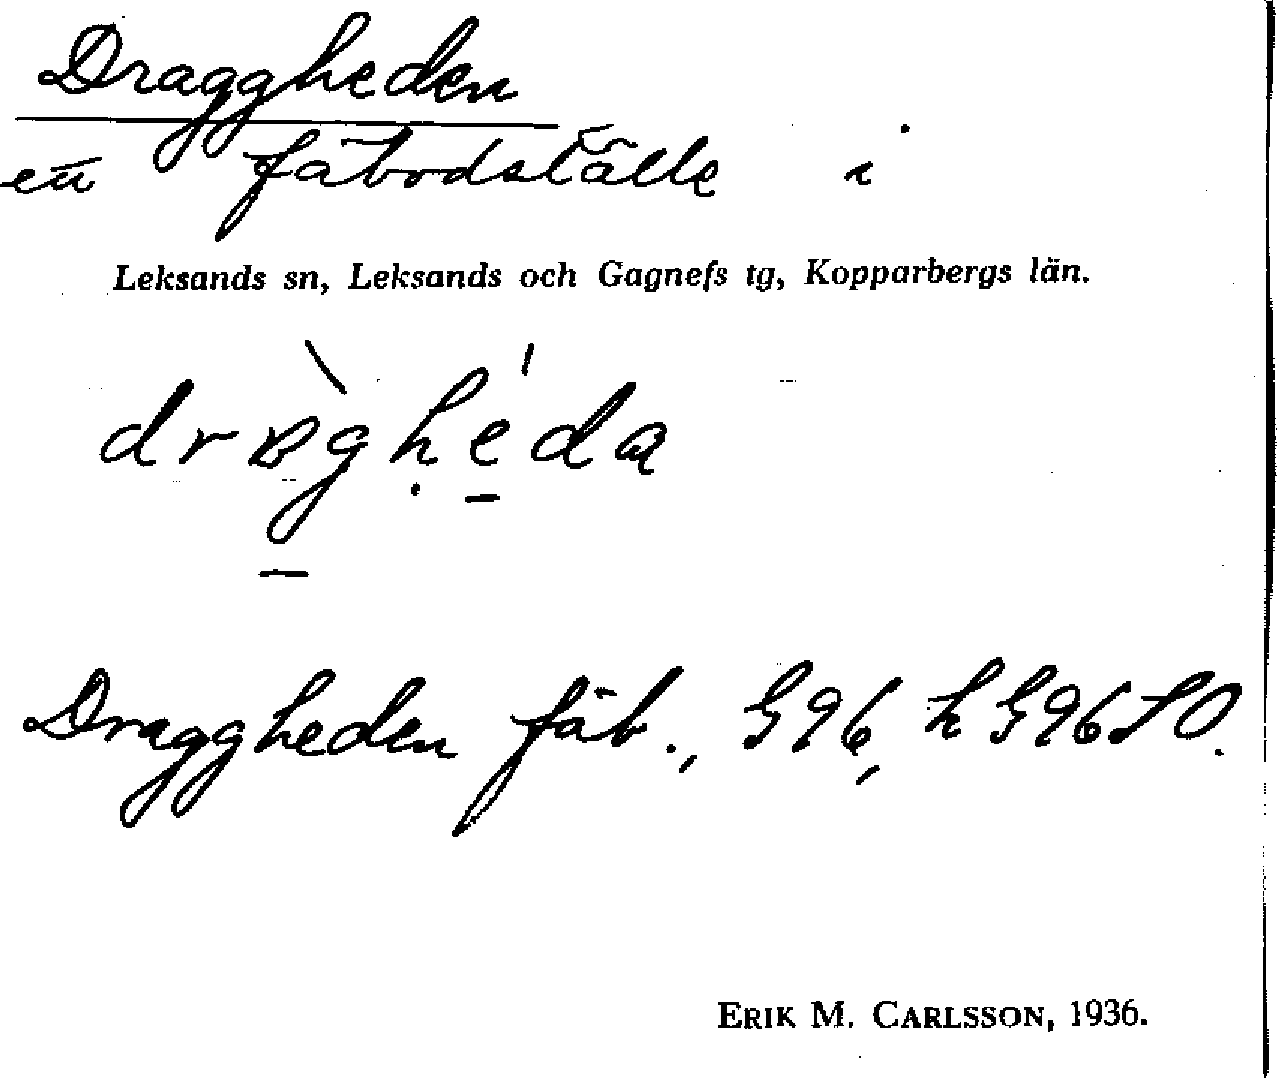 Draggheden
ett fäbodställe i
Leksands sn, Leksands och Gagnefs tg, Kopparbergs län.
Draggheden fäb., G96, h G96SO.
ERIK M. CARLSSON, 1936.